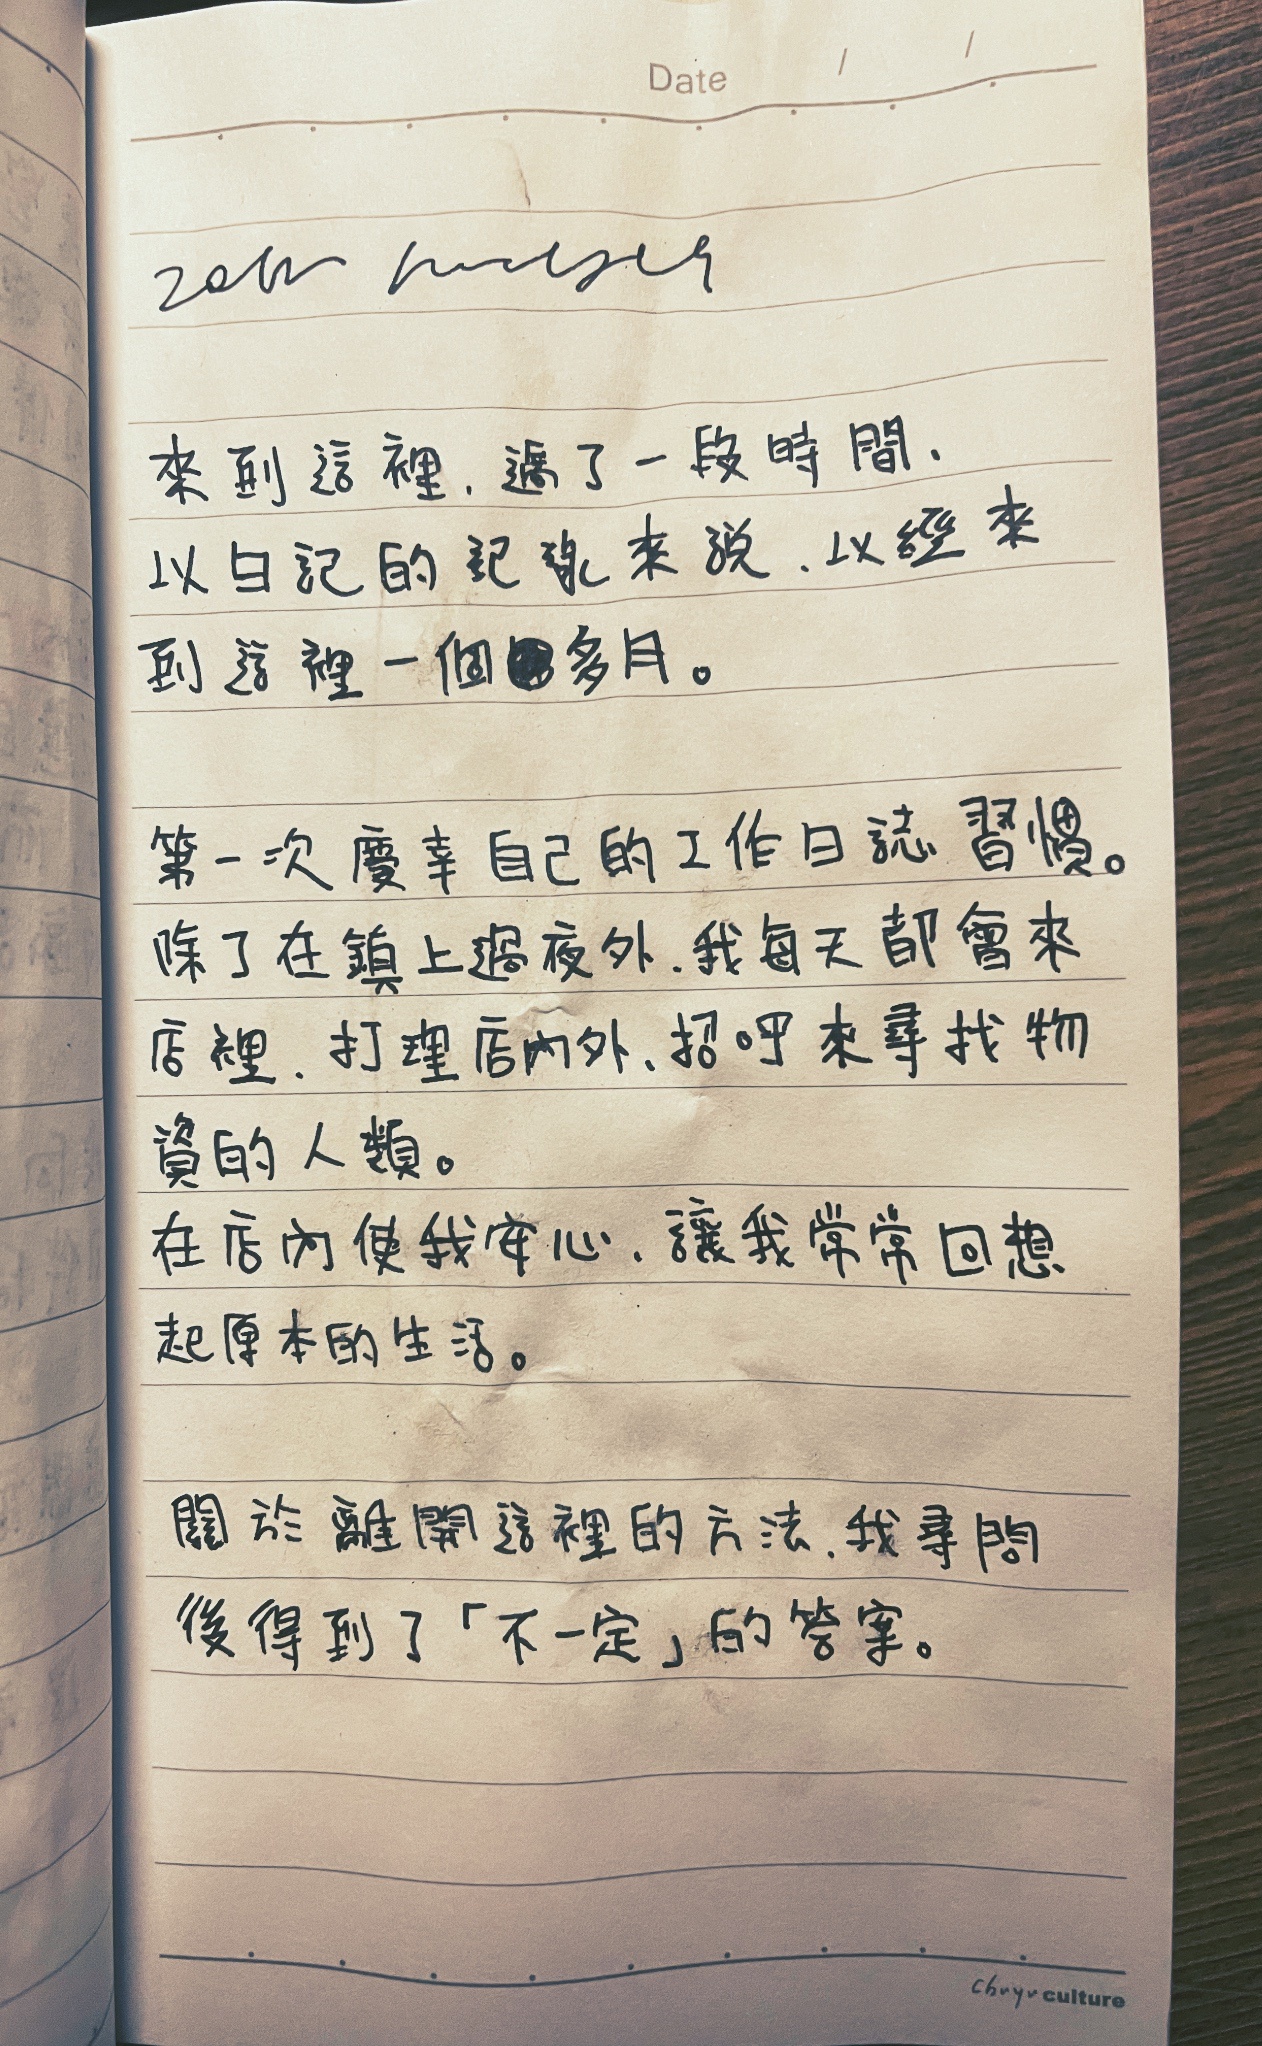 Date / /
來到這裡，過了一段時間，
以日記的記亂來說，以經來
到這裡一個多月。
第一次慶幸自己的工作日誌習慣。
除了在鎮上過夜外，我每天都會來
店裡，打理店內外、招呼來尋找物
資的人類。
在店內使我安心，讓我常常回想
起原本的生活。
關於離開這裡的方法，我尋問
後得到了「不一定」的答案。
Chuyu culture